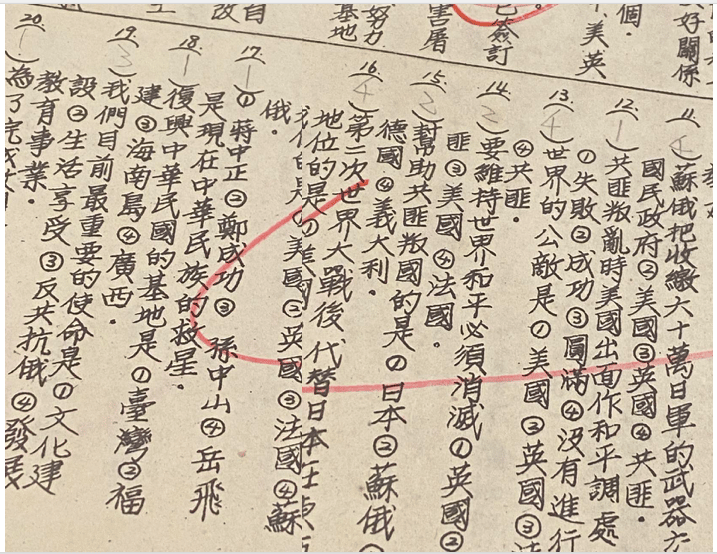 好關係
個。
、美英
已簽訂
害層
努力
基地
自
改
11.(4)蘇俄把收繳六十萬日軍的武器
國民政府②美國③英國④共匪。
12.(1)共匪叛亂時美國出面作和平調處
①失敗②成功③圓滿④沒有進行
13.(4)世界的公敵是①美國②英國③法
④共匪。
14.(2)要維持世界和平必須消滅①英國②
匪③美國④法國。
15.(2)幫助共匪叛國的是①日本②蘇俄
德國④義大利。
16.(4)第二次世界大戰後代替日本在東
地位的是①美國②英國③法國④蘇
俄。
17.(1)①蔣中正②鄭成功③孫中山④岳飛
是現在中華民族的救星。
18.(1)復興中華民國的基地是①臺灣②福
建③海南島④廣西。
19.(3)我們目前最重要的使命是①文化建
設②生活享受③反共抗俄④發表
教育事業。
20.(1)為了完成